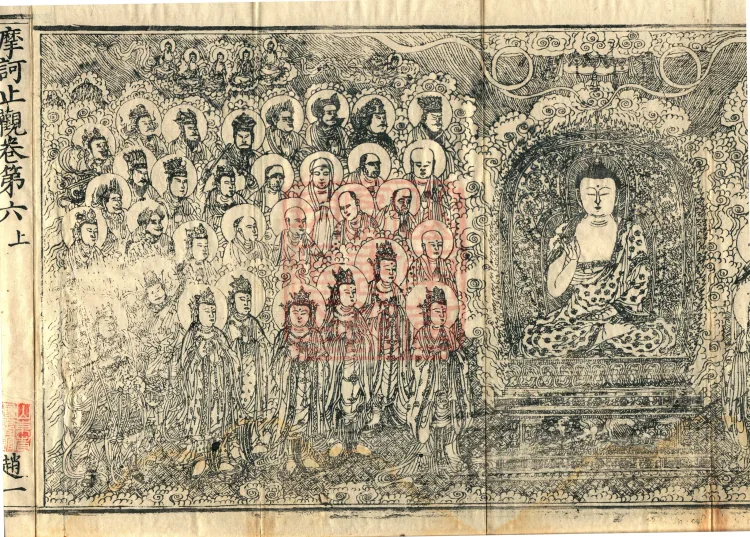 摩訶止觀卷第六上
趙一